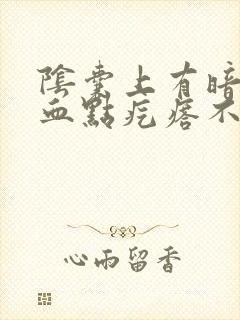 陰囊上有暗
血點疙瘩不
心雨留香